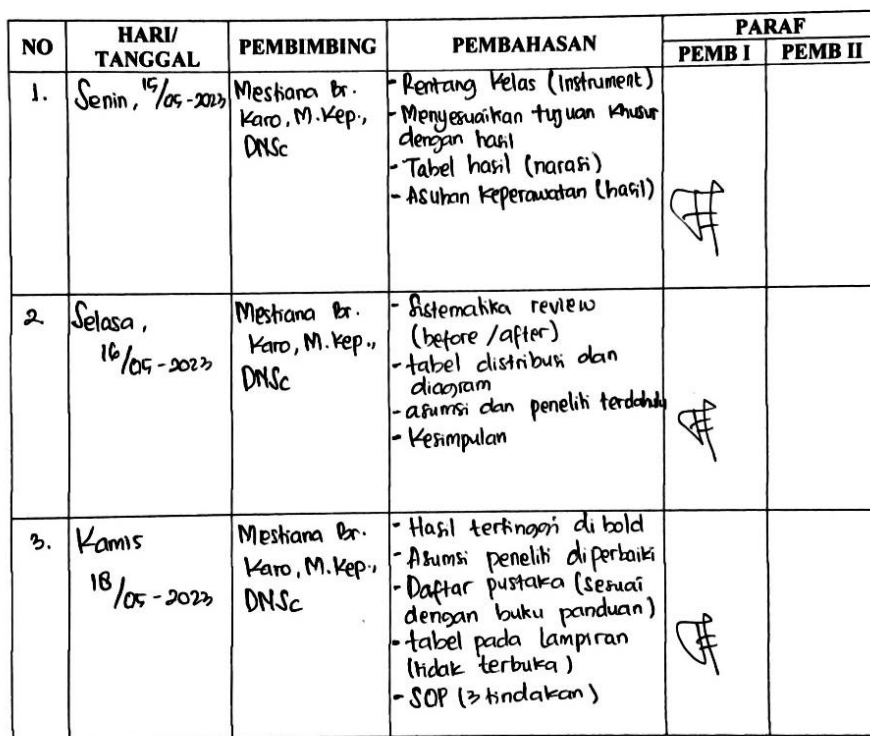 NO HARI/ TANGGAL PEMBIMBING PEMBAHASAN PARAF
PEMB I PEMB II
1. Senin, 15/05-2023 Mestiana Br. Karo, M.Kep., DNSc
- Rentang Kelas (Instrument)
- Menyesuaikan tujuan khusus
dengan hasil
- Tabel hasil (narasi)
- Asuhan Keperawatan (hasil)
2 Selasa, 16/05-2023 Mestiana Br. Karo, M.Kep., DNSc
- Sistematika review
(before/after)
- tabel distribusi dan
diagram
- asumsi dan peneliti terdahulu
- Kesimpulan
3. Kamis 18/05-2023 Mestiana Br. Karo, M.Kep., DNSc
- Hasil tertinggi di bold
- Asumsi peneliti diperbaiki
- Daftar pustaka (sesuai
dengan buku panduan)
- tabel pada lampiran
(tidak terbuka)
- SOP (3 tindakan)